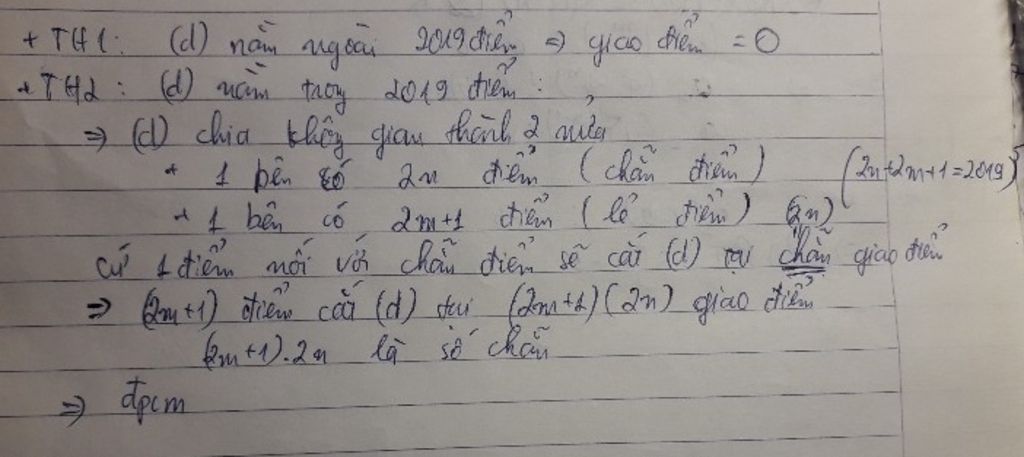 + TH1: (d) nằm ngoài 2019 điểm => giao điểm = 0
+ TH2: (d) nằm trong 2019 điểm:
=> (d) chia không gian thành 2 nửa
+ 1 bên có 2n điểm (chẵn điểm) (2n+2m+1=2019)
+ 1 bên có 2m+1 điểm (lẻ điểm) (2n)
cứ 1 điểm nối với chẵn điểm sẽ cắt (d) tại chẵn giao điểm
=> (2m+1) điểm cắt (d) tại (2m+1)(2n) giao điểm
(2m+1).2n là số chẵn
=> đpcm